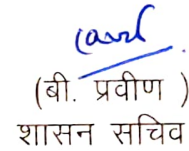 (बी. प्रवीण )
शासन सचिव